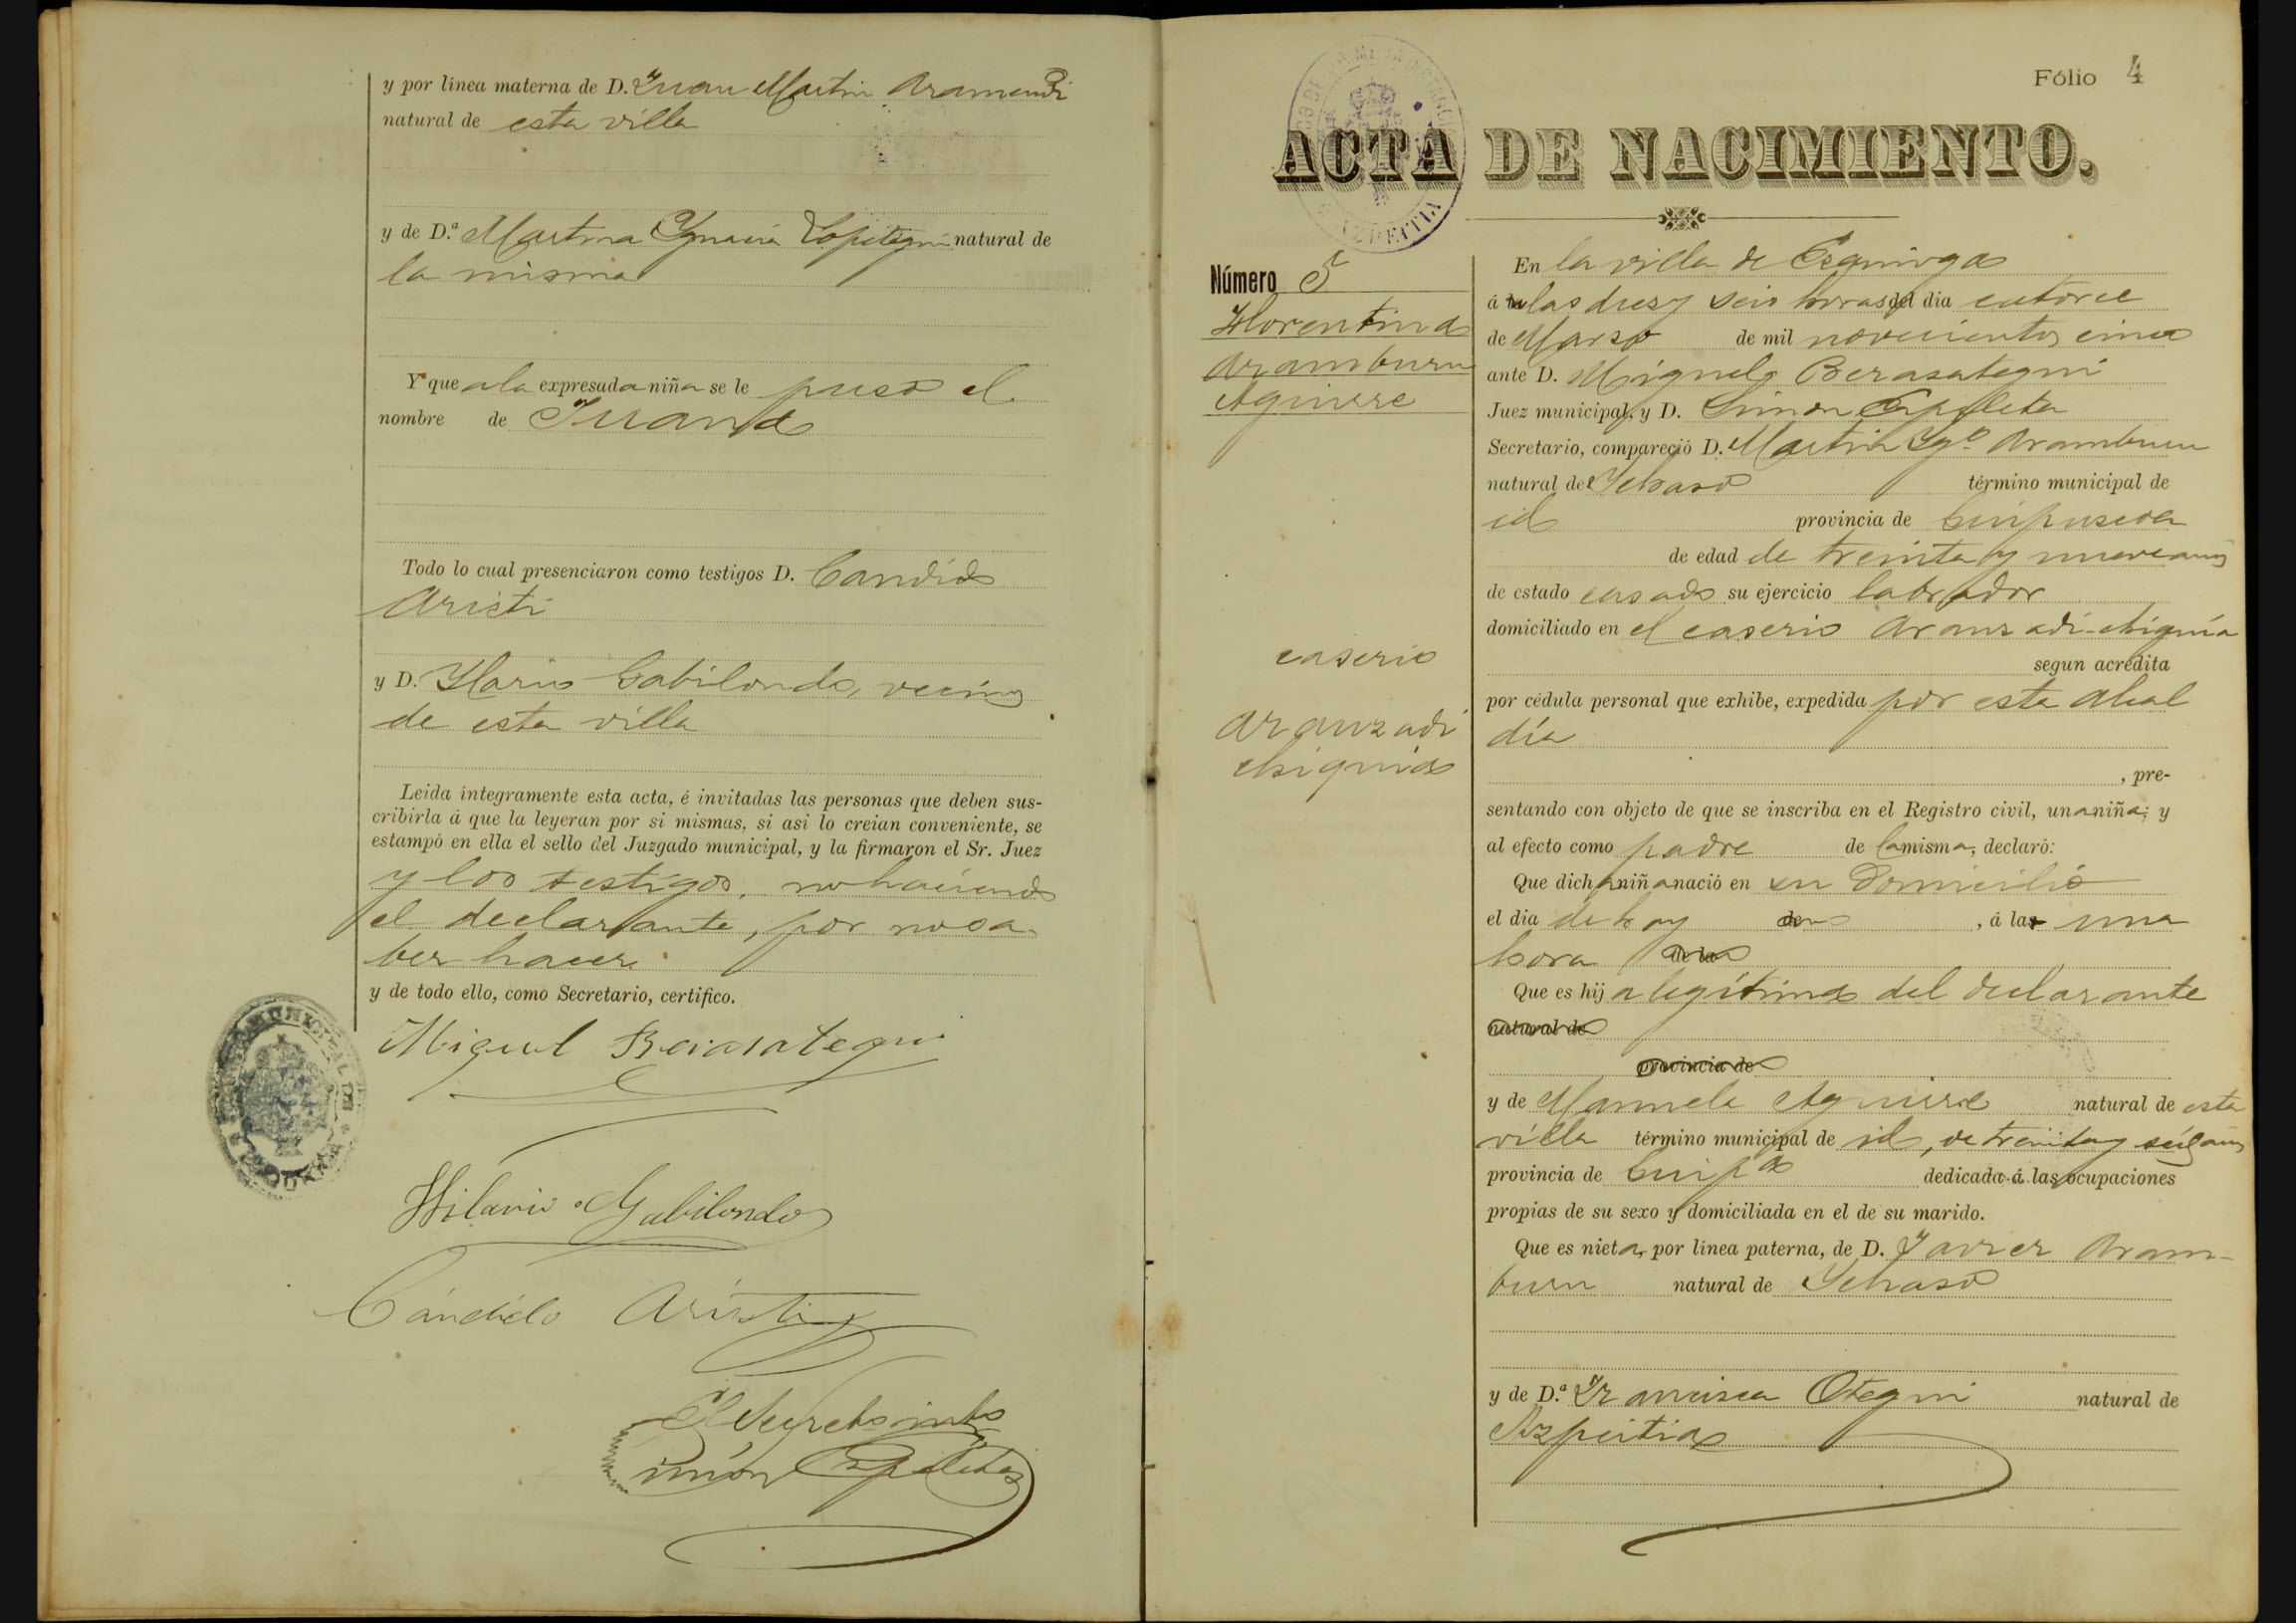 y por línea materna de D. Juan Martin Aramendi
natural de esta villa
y de D.ª Martina Ygnacia Lopetegui natural de
la misma
Y que a la expresada niña se le puso el
nombre de Juana
Todo lo cual presenciaron como testigos D. Candido
Aristi
y D. Ylario Gabilondo, vecinos
de esta villa
Leida íntegramente esta acta, é invitadas las personas que deben sus-
cribirla á que la leyeran por si mismas, si asi lo creian conveniente, se
estampó en ella el sello del Juzgado municipal, y la firmaron el Sr. Juez
y los testigos, no haciendo
el declarante, por no sa-
ber hacer.
y de todo ello, como Secretario, certifico.
Miguel Berasategui
Hilario Gabilondo
Cándido Aristi
El Secretario
Simón
Fólio 4
ACTA DE NACIMIENTO.
AZPEITIA
Número 5
Florentina
Aramburu
Aguirre
caserio
Aranzadi
chiquia
En la villa de
á las diez y seis horas del dia catorce
de Marzo de mil novecientos cinco
ante D. Miguel Berasategui
Juez municipal, y D. Simon
Secretario, compareció D. Martin Ygº Aramburu
natural de Ychaso término municipal de
id provincia de Guipuzcoa
de edad de treinta y nueve años
de estado casado su ejercicio labrador
domiciliado en el caserio Aranzadi-chiquia
segun acredita
por cédula personal que exhibe, expedida por esta Alcal
día
, pre-
sentando con objeto de que se inscriba en el Registro civil, una niña; y
al efecto como padre de la misma, declaró:
Que dicha niña nació en su domicilio
el dia de hoy de , á la una
hora de la
Que es hija legítima del declarante
natural de
provincia de
y de Manuela Aguirre natural de esta
villa término municipal de id, de treinta y seis años
provincia de Guipª dedicada á las ocupaciones
propias de su sexo y domiciliada en el de su marido.
Que es nieta, por línea paterna, de D. Javier Aram-
buru natural de Ychaso
y de D.ª Francisca Otegui natural de
Azpeitia